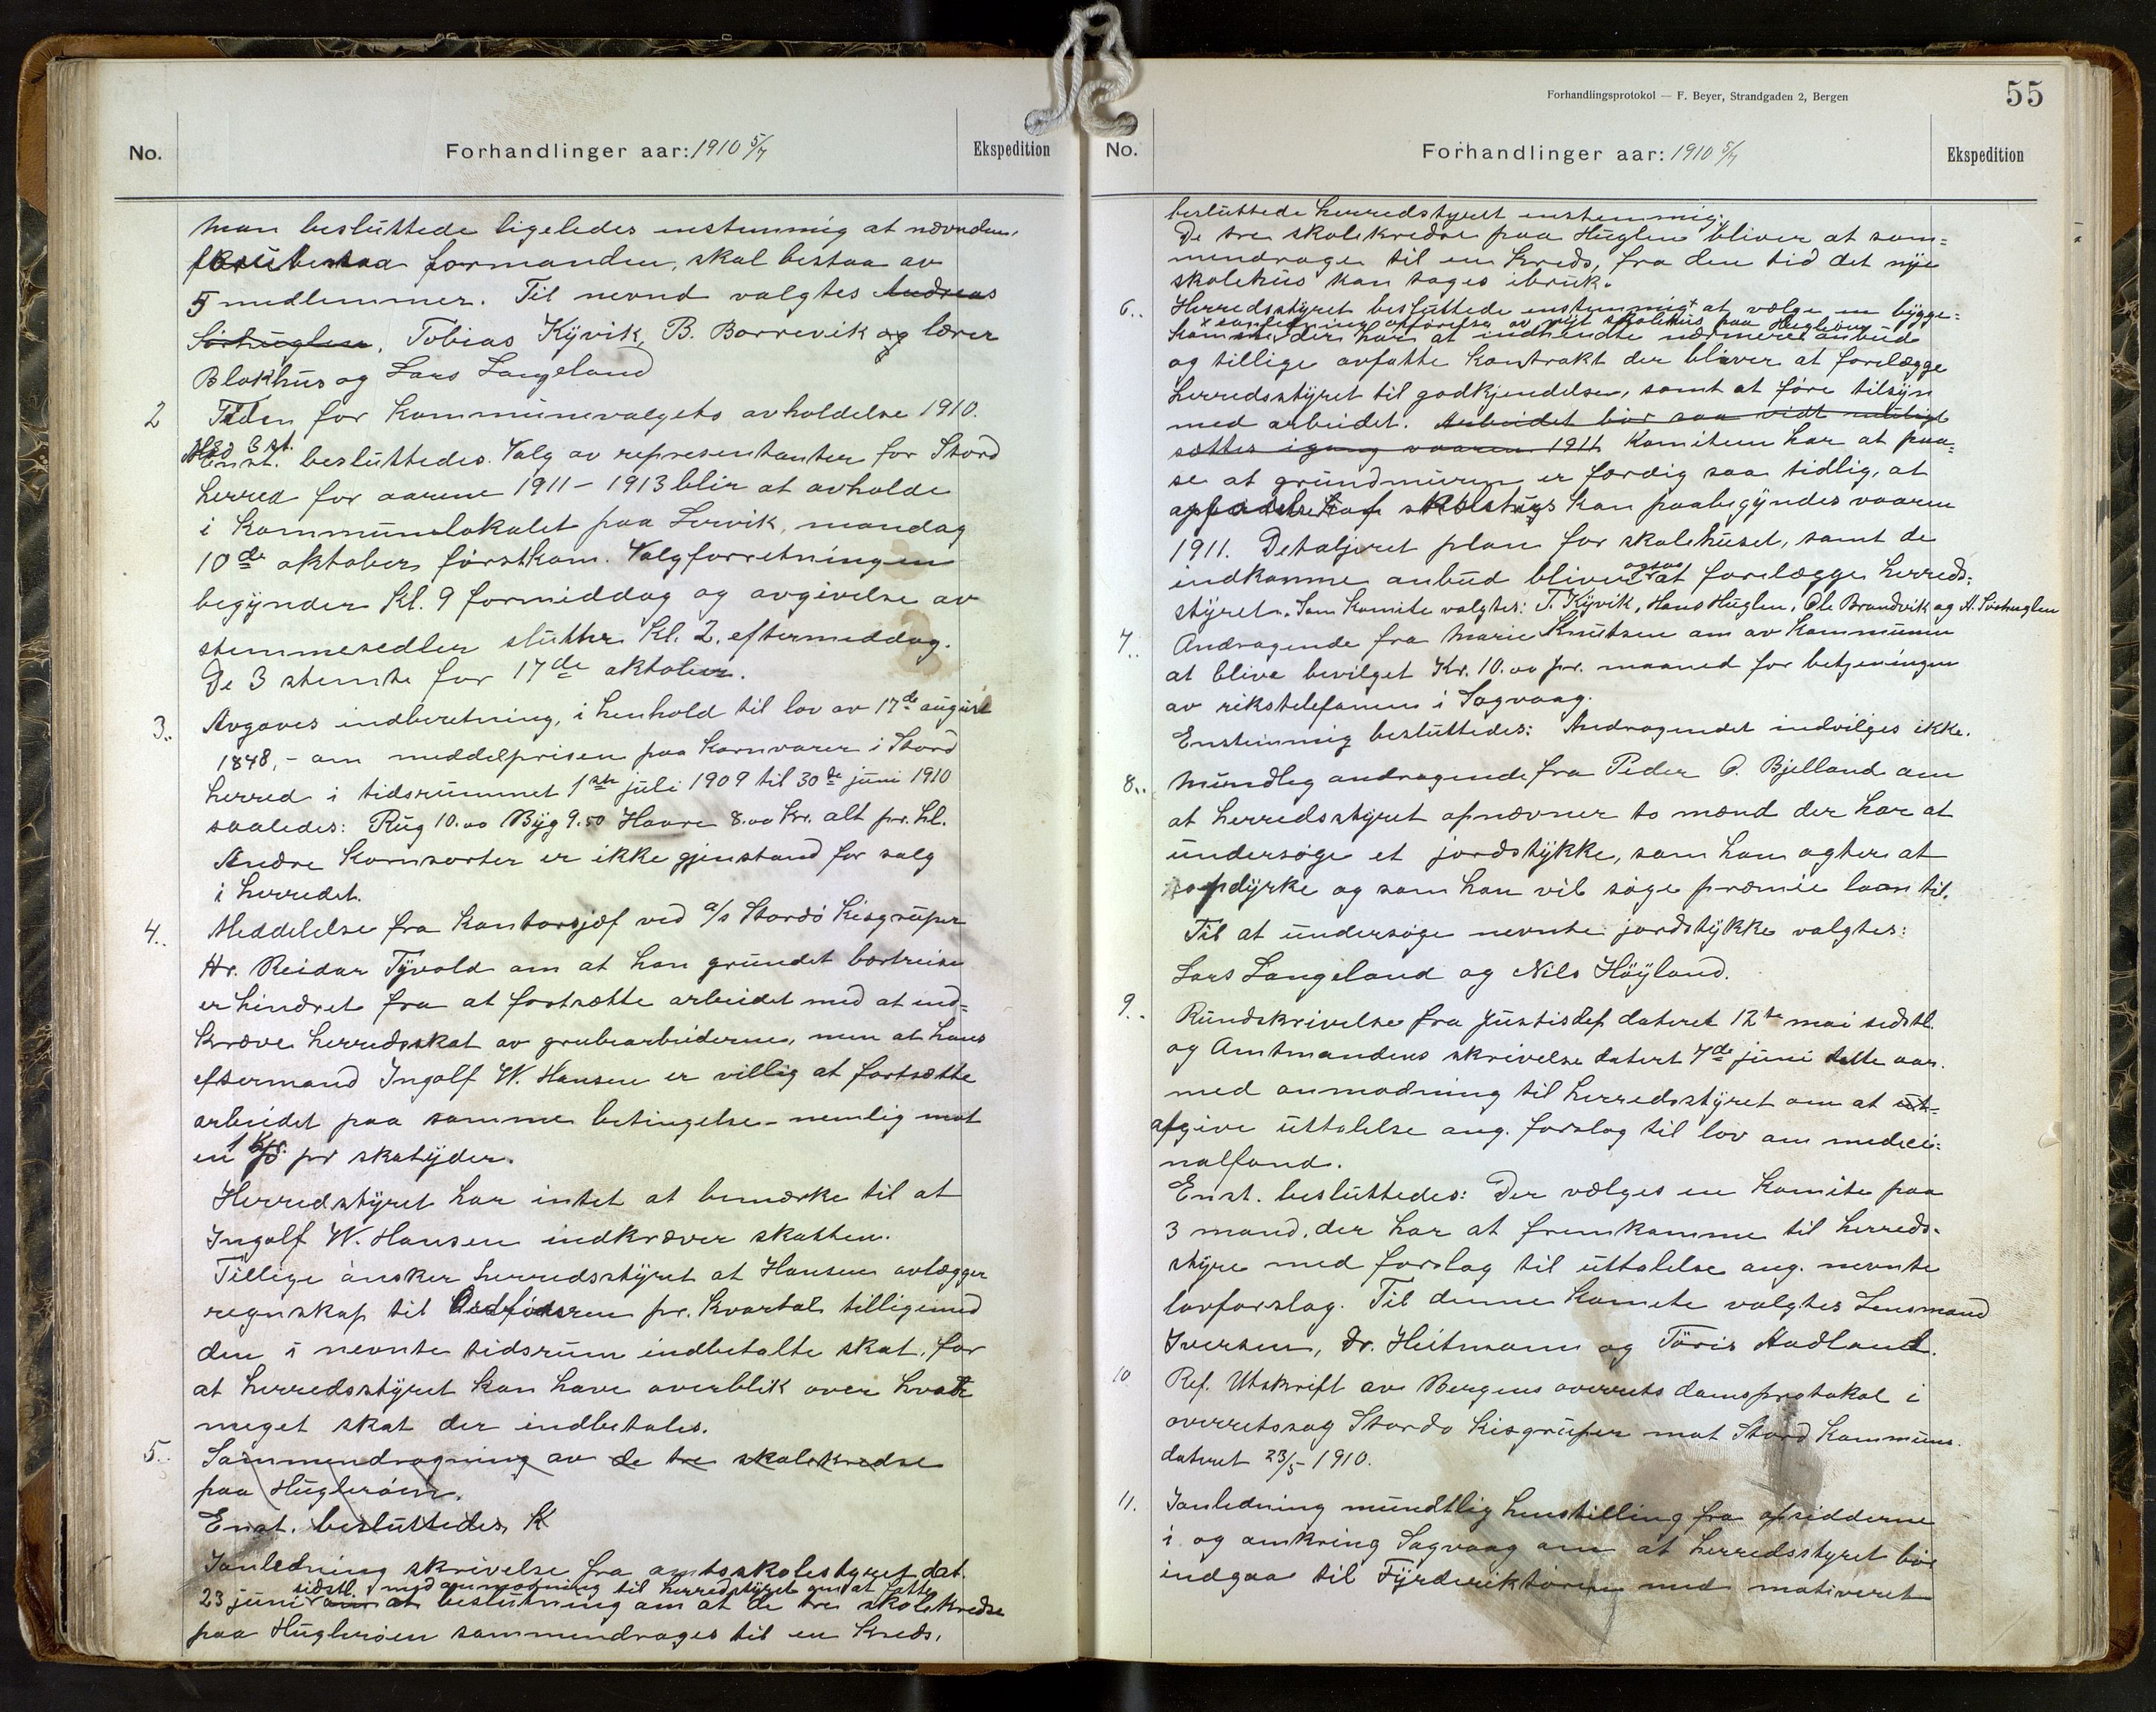 No.
Forhandlinger aar: 1910 5/7
Ekspedition
Man besluttede ligeledes enstemmig at nævnden,
formanden, skal bestaa av
5 medlemmer. Til nevnd valgtes Andreas
Sørhuglen, Tobias Kyvik, B. Borrevik og lærer
Blokhus og Lars Langeland
2 Tiden for kommunevalgets avholdelse 1910.
Med 3 st.
Enst. besluttedes. Valg av representanter for Stord
herred for aarene 1911 - 1913 blir at avholde
i kommunelokalet paa Lervik, mandag
10de oktober førstkom. Valgforretningen
begynder Kl. 9 formiddag og avgivelse av
stemmesedler slutter Kl. 2. eftermeddag.
De 3 stemte for 17de oktober.
3.. Avgaves indberetning, i henhold til lov av 17de august
1848, - om meddelprisen paa kornvarer i Stord
herred i tidsrummet 1ste juli 1909 til 30de juni 1910
saaledes: Rug 10.00 Byg 9.50 Havre 8.00 kr. alt pr. hl.
Andre kornsorter er ikke gjenstand for salg
i herredet.
4.. Meddelelse fra kontorsjef ved a/s Stordø Kisgruper
Hr. Reidar Tyvold om at han grundet bortreise
er hindret fra at fortsætte arbeidet med at ind=
kræve herredsskat av grubearbeiderne, men at hans
eftermand Ingolf W. Hansen er villig at fortsætte
arbeidet paa samme betingelse - nemlig mot
en 1 kr. pr skatyder.
Herredstyret har intet at bemærke til at
Ingolf W. Hansen indkræver skatten.
Tillige ønsker herredsstyret at Hansen avlægger
regnskap til pr. kvartal tilligemed
den i nevnte tidsrum indbetalte skat, for
at herredsstyret kan have overblik over hvor
meget skat der indbetales.
5.. Sammendragning av de tre skolekredse
paa Huglerøen.
Enst. besluttedes, K
Ianledning skrivelse fra amtsskolestyret dat.
sidstl. med anmodning til herredstyret om at fatte
23 juni om at beslutning om at de tre skolekredse
paa Huglerøen sammendrages til en kreds,
Forhandlingsprotokol — F. Beyer, Strandgaden 2, Bergen
55
No.
Forhandlinger aar: 1910 5/7
Ekspedition
besluttede herredstyret enstemmig:
De tre skolekredse paa Huglen bliver at sam=
mendrage til en kreds, fra den tid det nye
skolehus kan tages ibruk.
6.. Herredsstyret besluttede enstemmig x at vælge en bygge=
x opførelse av nyt skolehus paa Hugløen
komite, der har at indhendte nærmere anbud
og tillige avfatte kontrakt der bliver at forelægge
herredsstyret til godkjendelse, samt at føre tilsyn
med arbeidet. Arbeidet bør saa vidt muligt
sættes igang vaaren 1911. Komiteen har at paa=
se at grundmuren er færdig saa tidlig, at
skolehus kan paabegyndes vaaren
1911. Detaljeret plan for skolehuset, samt de
ogsaa
indkomne anbud bliver at forelægge herreds=
styret. Som komite valgtes: T. Kyvik, Hans Huglen, Ole Brandvik og A. Sørhuglen
7.. Andragende fra Marie Knutsen om av kommunen
at blive bevilget Kr. 10.00 pr. maaned for betjeningen
av rikstelefonen i Sagvaag.
Enstemmig besluttedes: Andragendet indvilges ikke.
8.. Mundlig andragende fra Peder O. Bjelland om
at herredsstyret opnævner to mænd der har at
undersøge et jordstykke, som han agter at
opdyrke og som han vil søge præmie laan til.
Til at undersøge nevnte jordstykke valgtes:
Lars Langeland og Nils Høyland.
9.. Rundskrivelse fra Justisdep dateret 12te mai sidstl.
og Amtmandens skrivelse datert 7de juni dette aar.
med anmodning til herredsstyret om at ut=
afgive uttalelse ang. forslag til lov om medici=
nalfond.
Enst. besluttedes: Der vælges en komite paa
3 mand, der har at fremkomme til herreds-
styre med forslag til uttalelse ang. nevnte
lovforslag. Til denne komite valgtes Lensmand
Iversen, Dr. Heitmann og Tøris Aadland.
10 Ref. Utskrift av Bergens overrets domsprotokol i
overretssag Stordø Kisgruper mot Stord kommune.
dateret 23/5 - 1910.
11. Ianledning mundtlig henstilling fra opsidderne
i og omkring Sagvaag om at herredsstyret bør
indgaa til Fyrdirektøren med motiveret